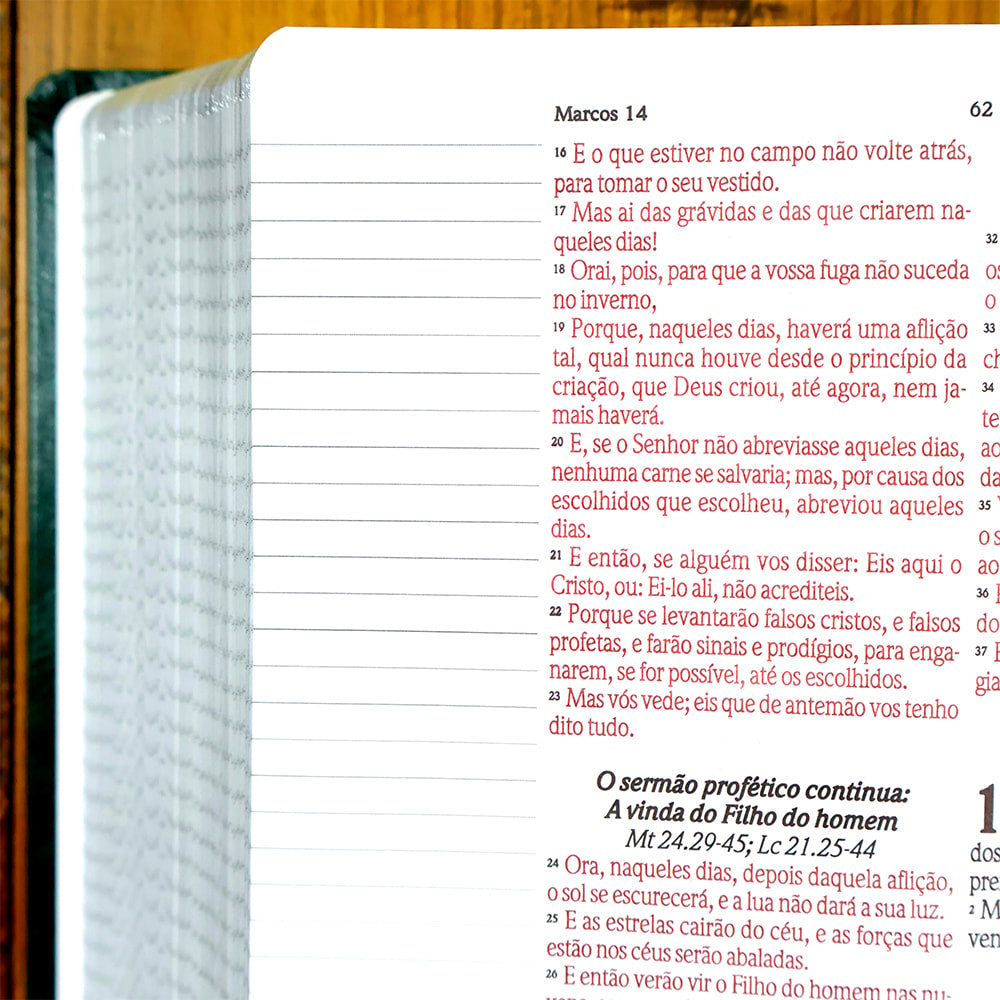 Marcos 14
62
16 E o que estiver no campo não volte atrás,
para tomar o seu vestido.
17 Mas ai das grávidas e das que criarem na-
queles dias!
18 Orai, pois, para que a vossa fuga não suceda
no inverno,
19 Porque, naqueles dias, haverá uma aflição
tal, qual nunca houve desde o princípio da
criação, que Deus criou, até agora, nem ja-
mais haverá.
20 E, se o Senhor não abreviasse aqueles dias,
nenhuma carne se salvaria; mas, por causa dos
escolhidos que escolheu, abreviou aqueles
dias.
21 E então, se alguém vos disser: Eis aqui o
Cristo, ou: Ei-lo ali, não acrediteis.
22 Porque se levantarão falsos cristos, e falsos
profetas, e farão sinais e prodígios, para enga-
narem, se for possível, até os escolhidos.
23 Mas vós vede; eis que de antemão vos tenho
dito tudo.
O sermão profético continua:
A vinda do Filho do homem
Mt 24.29-45; Lc 21.25-44
24 Ora, naqueles dias, depois daquela aflição,
o sol se escurecerá, e a lua não dará a sua luz.
25 E as estrelas cairão do céu, e as forças que
estão nos céus serão abaladas.
26 E então verão vir o Filho do homem nas nu-
32
os
o
33
ch
34
te
ao
da
35
o s
ao
36
do
37 E
gia
1
dos
pre
2 M
ven